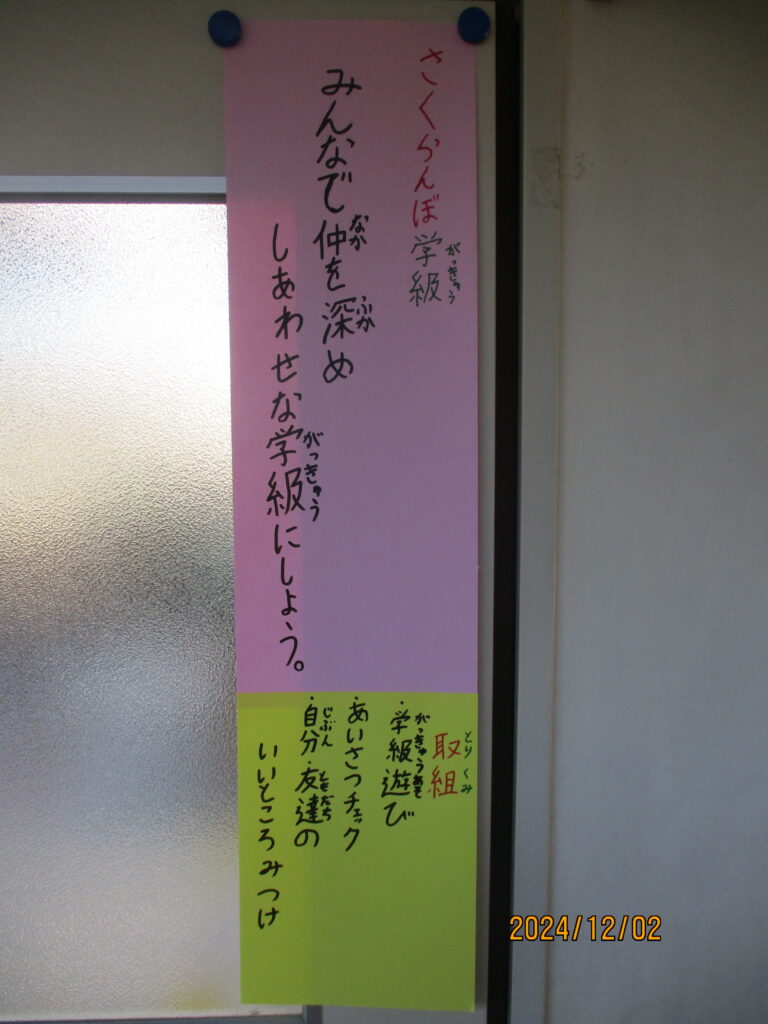 さくらんぼ学級
がっきゅう
みんなで仲を深め
なか
ふか
しあわせな学級にしよう。
がっきゅう
取組
とりくみ
・学級遊び
がっきゅうあそ
・あいさつチェック
・自分・友達の
じぶん
ともだち
いいところみつけ
2024/12/02